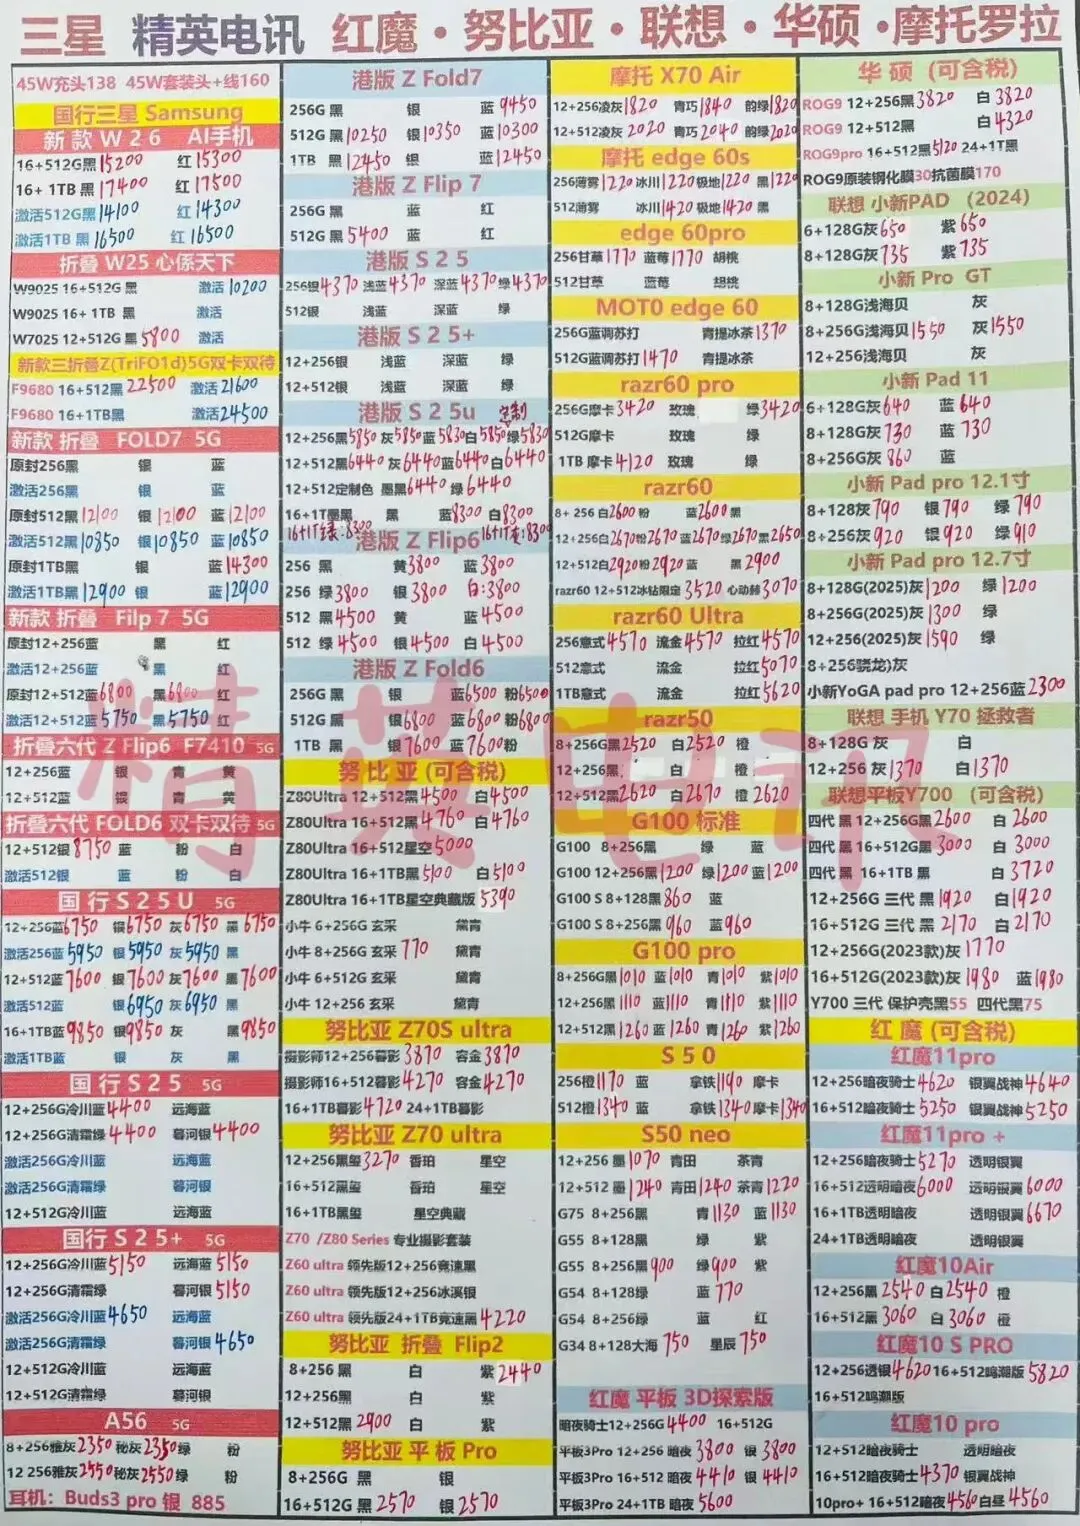 三星 精英电讯 红魔·努比亚·联想·华硕·摩托罗拉
45W充头138 45W套装头+线160
国行三星 Samsung
新款W26 AI手机
16+512G黑15200 红15300
16+1TB 黑17400 红17500
激活512G黑14100 红14300
激活1TB 黑16500 红16500
折叠 W25 心係天下
W9025 16+512G 黑 激活10200
W9025 16+1TB 黑 激活
W7025 12+512G 黑5800 激活
新款三折叠Z(TriFO1d)5G双卡双待
F9680 16+512黑22500 激活21600
F9680 16+1TB黑 激活24500
新款 折叠 FOLD7 5G
原封256黑 银 蓝
激活256黑 银 蓝
原封512黑12100 银12100 蓝12100
激活512黑10850 银10850 蓝10850
原封1TB黑 银 蓝14300
激活1TB黑12900 银 蓝12900
新款 折叠 Filp 7 5G
原封12+256蓝 黑 红
激活12+256蓝 黑 红
原封12+512蓝6800 黑6800 红
激活12+512蓝5750 黑5750 红
折叠六代 Z Flip6 F7410 5G
12+256蓝 银 青 黄
12+512蓝 银 青 黄
折叠六代 FOLD6 双卡双待 5G
12+512银8750 蓝 粉 白
激活512银 蓝 粉 白
国行S25U 5G
12+256蓝6750 银6750 灰6750 黑6750
激活256蓝5950 银5950 灰5950 黑
12+512蓝7600 银7600 灰7600 黑7600
激活512蓝 银6950 灰6950 黑
16+1TB蓝9850 银9850 灰 黑9850
激活1TB蓝 银 灰 黑
国行S25 5G
12+256G冷川蓝4400 远海蓝
12+256G清霜绿4400 暮河银4400
激活256G冷川蓝 远海蓝
激活256G清霜绿 暮河银
12+512G冷川蓝 远海蓝
国行S25+ 5G
12+256G冷川蓝5150 远海蓝5150
12+256G清霜绿 暮河银5150
激活256G冷川蓝4650 远海蓝
激活256G清霜绿 暮河银4650
12+512G冷川蓝 远海蓝
12+512G清霜绿 暮河银
A56 5G
8+256雅灰2350 秘灰2350绿 粉
12 256雅灰2550 秘灰2550绿 粉
耳机：Buds3 pro 银 885
港版 Z Fold7
256G 黑 银 蓝9450
512G 黑10250 银10350 蓝10300
1TB 黑12450 银 蓝12450
港版 Z Flip 7
256G 黑 蓝 红
512G 黑5400 蓝 红
港版 S25
256银4370 浅蓝4370 深蓝4370 绿4370
512银 浅蓝 深蓝 绿
港版 S25+
12+256银 浅蓝 深蓝 绿
12+512银 浅蓝 深蓝 绿
港版 S25u 定制
12+256黑5850 灰5850 蓝5830 白5850 绿5830
12+512黑6440 灰6440 蓝6440 白6440
12+512定制色 墨黑6440 绿6440
16+1T墨黑 黑 蓝8300 白8300
16+1T绿:8300 16+1T:8300
港版 Z Flip6
256 黑 黄3800 蓝3800
256 绿3800 银3800 白:3800
512 黑4500 黄 蓝4500
512 绿4500 银4500 白4500
港版 Z Fold6
256G 黑 银 蓝6500 粉6500
512G 黑 银6800 蓝6800 粉6800
1TB 黑 银7600 蓝7600粉
努比亚(可含税)
Z80Ultra 12+512黑4500 白4500
Z80Ultra 16+512黑4760 白4760
Z80Ultra 16+512星空5000
Z80Ultra 16+1TB黑5100 白5100
Z80Ultra 16+1TB星空典藏版 5390
小牛 6+256G 玄采 黛青
小牛 8+256G 玄采 770 黛青
小牛 6+512G 玄采 黛青
小牛 12+256 玄采 黛青
努比亚 Z70S ultra
摄影师12+256暮影3870 容金3870
摄影师16+512暮影4270 容金4270
16+1TB暮影4720 24+1TB暮影
努比亚 Z70 ultra
12+256黑玺3270 香珀 星空
16+512黑玺 香珀 星空
16+1TB黑玺 星空典藏
Z70 /Z80 Series 专业摄影套装
Z60 ultra 领先版12+256竞速黑
Z60 ultra 领先版12+256冰溪银
Z60 ultra 领先版24+1TB竞速黑4220
努比亚 折叠 Flip2
8+256 黑 白 紫2440
12+256黑 白 紫
12+512黑2900 白 紫
努比亚平板Pro
8+256G 黑 银
16+512G 黑2570 银2570
摩托 X70 Air
12+256凌灰1820 青巧1840 韵绿1820
12+512凌灰2020 青巧2040 韵绿2020
摩托 edge 60s
256薄雾1220 冰川1220 极地1220 黑1220
512薄雾 冰川1420 极地1420 黑
edge 60pro
256甘草1770 蓝莓1770 胡桃
512甘草 蓝莓 胡桃
MOT0 edge 60
256G蓝调苏打 青提冰茶1370
512G蓝调苏打1470 青提冰茶
razr60 pro
256G摩卡3420 玫瑰 绿3420
512G摩卡 玫瑰 绿
1TB 摩卡4120 玫瑰 绿
razr60
8+256 白2600粉 蓝2600黑
12+256白2670粉2670 蓝2670 绿2670 黑2650
12+512白2920粉2920 蓝 黑2900
razr60 12+512冰钻限定3520 心动赫3070
razr60 Ultra
256意式4570 流金4570 拉红4570
512意式 流金 拉红5070
1TB意式 流金 拉红5620
razr50
8+256G黑2520 白2520 橙
12+256黑 白 橙
12+512黑2620 白2670 橙2620
G100 标准
G100 8+256黑 绿 蓝
G100 12+256黑1200 绿1200 蓝1200
G100 S 8+128黑860 蓝
G100 S 8+256黑960 蓝960
G100 pro
8+256G黑1010 蓝1010 青1010 紫1010
12+256黑1110 蓝1110 青1110 紫1110
12+512黑1260 蓝1260 青1260 紫1260
S50
256橙1170 蓝 拿铁1190 摩卡
512橙1340 蓝 拿铁1340 摩卡1340
S50 neo
12+256 墨1070 青田 茶青
12+512 墨1240 青田1240 茶青1220
G75 8+256黑 青1130 蓝1130
G55 8+128黑 绿 紫
G55 8+256黑900 绿900 紫
G54 8+128绿 蓝770
G54 8+256绿 蓝 红
G34 8+128大海750 星辰750
红魔 平板 3D探索版
暗夜骑士12+256G4400 16+512G
平板3Pro 12+256 暗夜3800 银3800
平板3Pro 16+512 暗夜4410 银4410
平板3Pro 24+1TB 暗夜5600
华硕 (可含税)
ROG9 12+256黑3820 白3820
ROG9 12+512黑 白4320
ROG9pro 16+512黑5120 24+1T黑
ROG9原装钢化膜30抗菌膜170
联想 小新PAD (2024)
6+128G灰650 紫650
8+128G灰735 紫735
小新 Pro GT
8+128G浅海贝 灰
8+256G浅海贝1550 灰1550
12+256浅海贝 灰
小新 Pad 11
6+128G灰640 蓝640
8+128G灰730 蓝730
8+256G灰860 蓝
小新 Pad pro 12.1寸
8+128灰790 银790 绿790
8+256灰920 银920 绿910
小新 Pad pro 12.7寸
8+128G(2025)灰1200 绿1200
8+256G(2025)灰1300 绿
12+256(2025)灰1590 绿
8+256骁龙)灰
小新YoGA pad pro 12+256蓝2300
联想 手机 Y70 拯救者
8+128G 灰 白
12+256 灰1370 白1370
联想平板Y700 (可含税)
四代 黑 12+256G黑2600 白2600
四代 黑 16+512G黑3000 白3000
四代 黑 16+1TB 黑 白3720
12+256G 三代 黑1920 白1920
16+512G 三代 黑2170 白2170
12+256G(2023款)灰1770
16+512G(2023款)灰1980 蓝1980
Y700 三代 保护壳黑55 四代黑75
红魔(可含税)
红魔11pro
12+256暗夜骑士4620 银翼战神4640
16+512暗夜骑士5250 银翼战神5250
红魔11pro +
12+256暗夜骑士5270 透明银翼
16+512透明暗夜6000 透明银翼6000
16+1TB透明暗夜 透明银翼6670
24+1TB透明暗夜 透明银翼
红魔10Air
12+256黑2540 白2540 橙
16+512黑3060 白3060 橙
红魔10 S PRO
12+256透银4620 16+512鸣潮版5820
16+512鸣潮版
红魔10 pro
12+512暗夜骑士 透明暗夜
16+512暗夜骑士4370 银翼战神
10pro+ 16+512暗夜4560 白昼4560
精英电讯